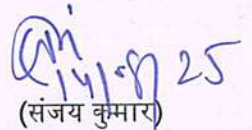 14/08/25
(संजय कुमार)